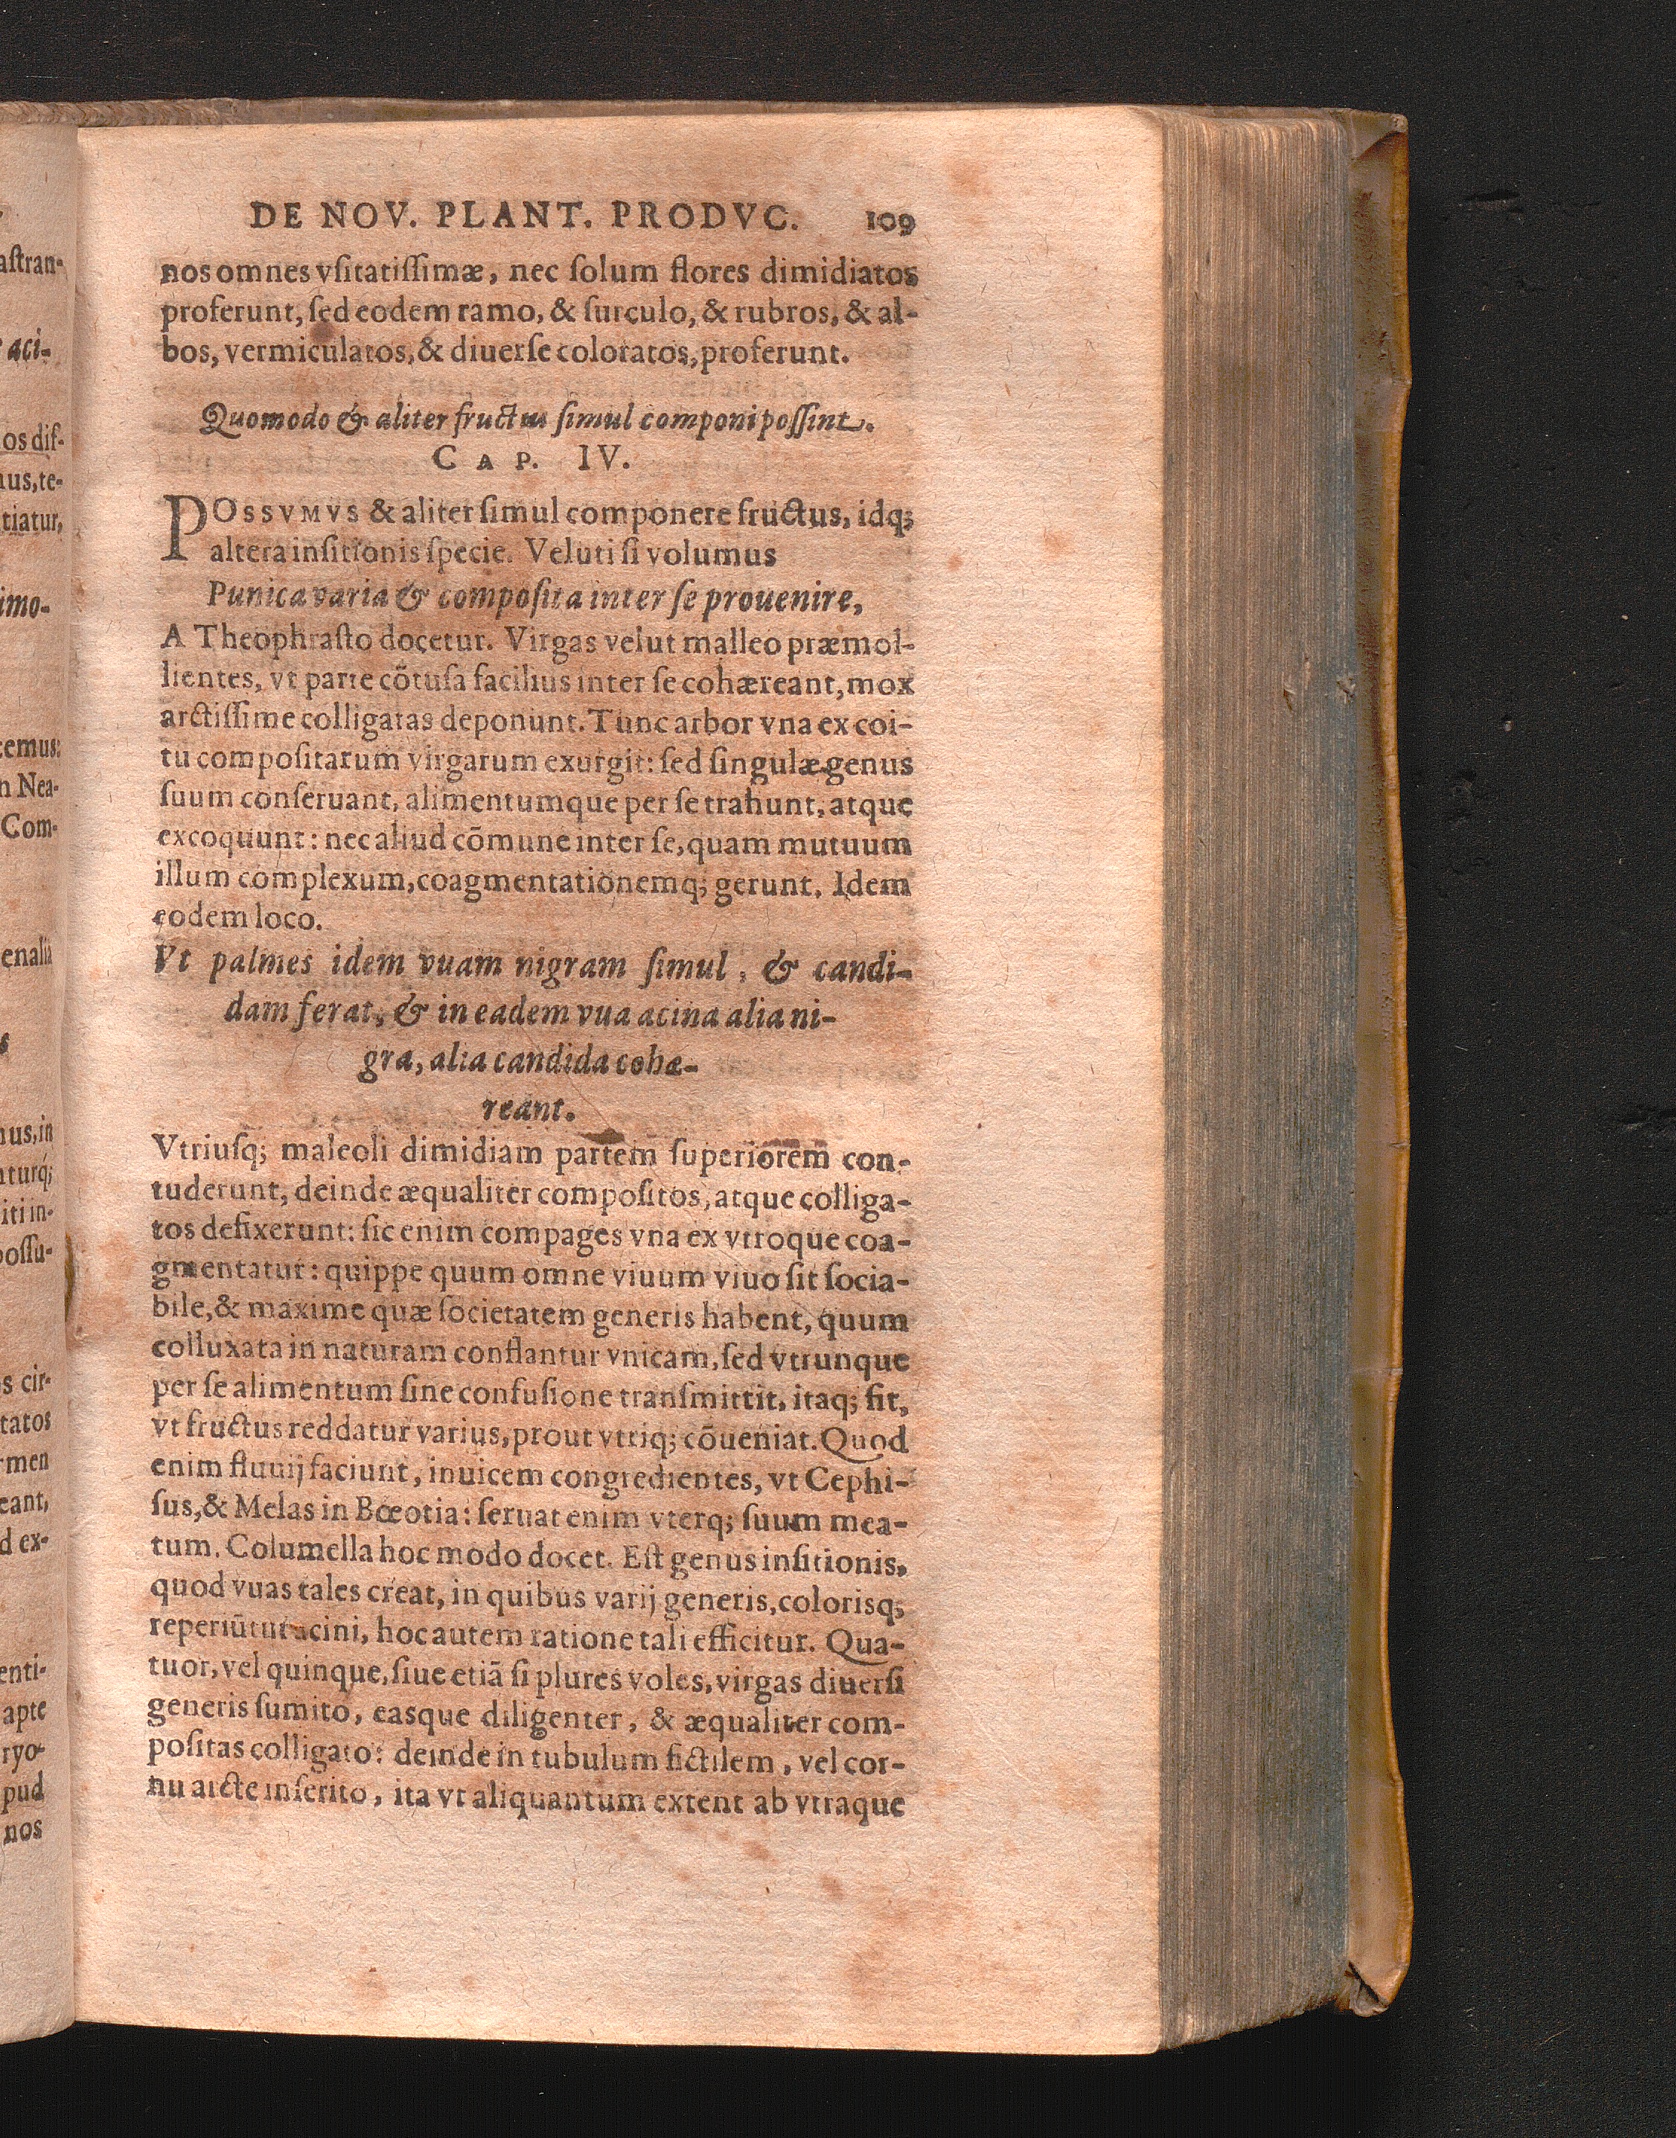 DE NOV. PLANT. PRODVC. 109
nos omnes vſitatiſſimæ, nec ſolum flores dimidiatos
proferunt, ſed eodem ramo, & ſurculo, & rubros, & al-
bos, vermiculatos, & diuerſe coloratos, proferunt.
Quomodo & aliter fructus ſimul componi poſſint.
CAP. IV.
POSSVMVS & aliter ſimul componere fructus, idq;
altera inſitionis ſpecie. Veluti ſi volumus
Punica varia & compoſita inter ſe prouenire,
A Theophraſto docetur. Virgas velut malleo præmol-
lientes, vt parte cõtuſa facilius inter ſe cohæreant, mox
arctiſſime colligatas deponunt. Tunc arbor vna ex coi-
tu compoſitarum virgarum exurgit: ſed ſingulæ genus
ſuum conſeruant, alimentumque per ſe trahunt, atque
excoquunt: nec aliud cõmune inter ſe, quam mutuum
illum complexum, coagmentationemq; gerunt. Idem
eodem loco.
Vt palmes idem vuam nigram ſimul, & candi-
dam ferat, & in eadem vua acina alia ni-
gra, alia candida cohæ-
reant.
Vtriuſq; maleoli dimidiam partem ſuperiorem con-
tuderunt, deinde æqualiter compoſitos, atque colliga-
tos defixerunt: ſic enim compages vna ex vtroque coa-
gmentatur: quippe quum omne viuum viuo ſit ſocia-
bile, & maxime quæ ſocietatem generis habent, quum
colluxata in naturam conflantur vnicam, ſed vtrunque
per ſe alimentum ſine confuſione tranſmittit, itaq; fit,
vt fructus reddatur varius, prout vtriq; cõueniat. Quod
enim fluuij faciunt, inuicem congredientes, vt Cephi-
ſus, & Melas in Bœotia: ſeruat enim vterq; ſuum mea-
tum. Columella hoc modo docet. Eſt genus inſitionis,
quod vuas tales creat, in quibus varij generis, coloriſq;
reperiũtur acini, hoc autem ratione tali efficitur. Qua-
tuor, vel quinque, ſiue etiã ſi plures voles, virgas diuerſi
generis ſumito, easque diligenter, & æqualiter com-
poſitas colligato: deinde in tubulum fictilem, vel cor-
nu arcte inſerito, ita vt aliquantum extent ab vtraque